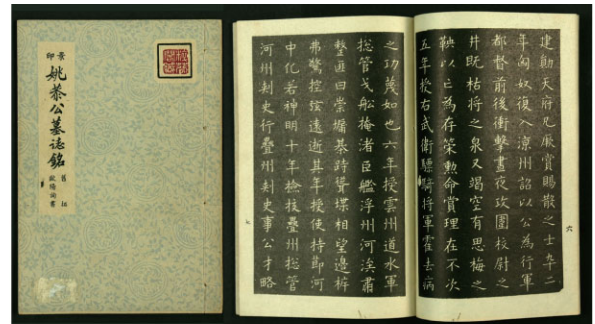 景印
姚恭公墓誌銘
舊拓
歐陽詢書
建勛天府凡厥賞賜散之士卒二
年匈奴復入涼州詔以公為行軍
都督前後衝擊晝夜攻圍校尉之
井既枯將之泉又竭空有思梅之
以亡為存策勲命賞理在不次
五年授右武衛驃騎將軍霍去病
六
之功蔑如也六年授雲州道水軍
捴管戈船掩渚巨艦浮州河涘肅
整曰崇墉基峙聳堞相望邊柝
弗驚控弦遠逝其年授使持節河
中化若神明十年檢校疊州捴管
河州刾史行疊州刾史事公才略
七